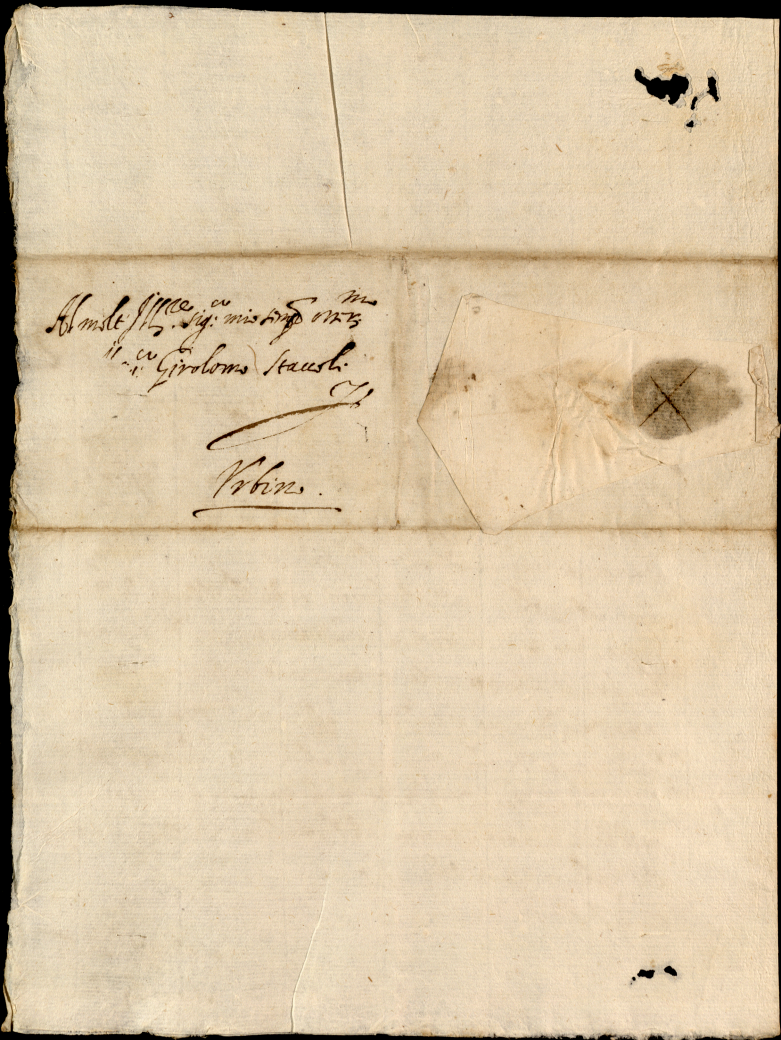 Al molt' Ill.re sig.r mio sing.r oss.mo
il s.r Girolomo Staccoli
Urbino.